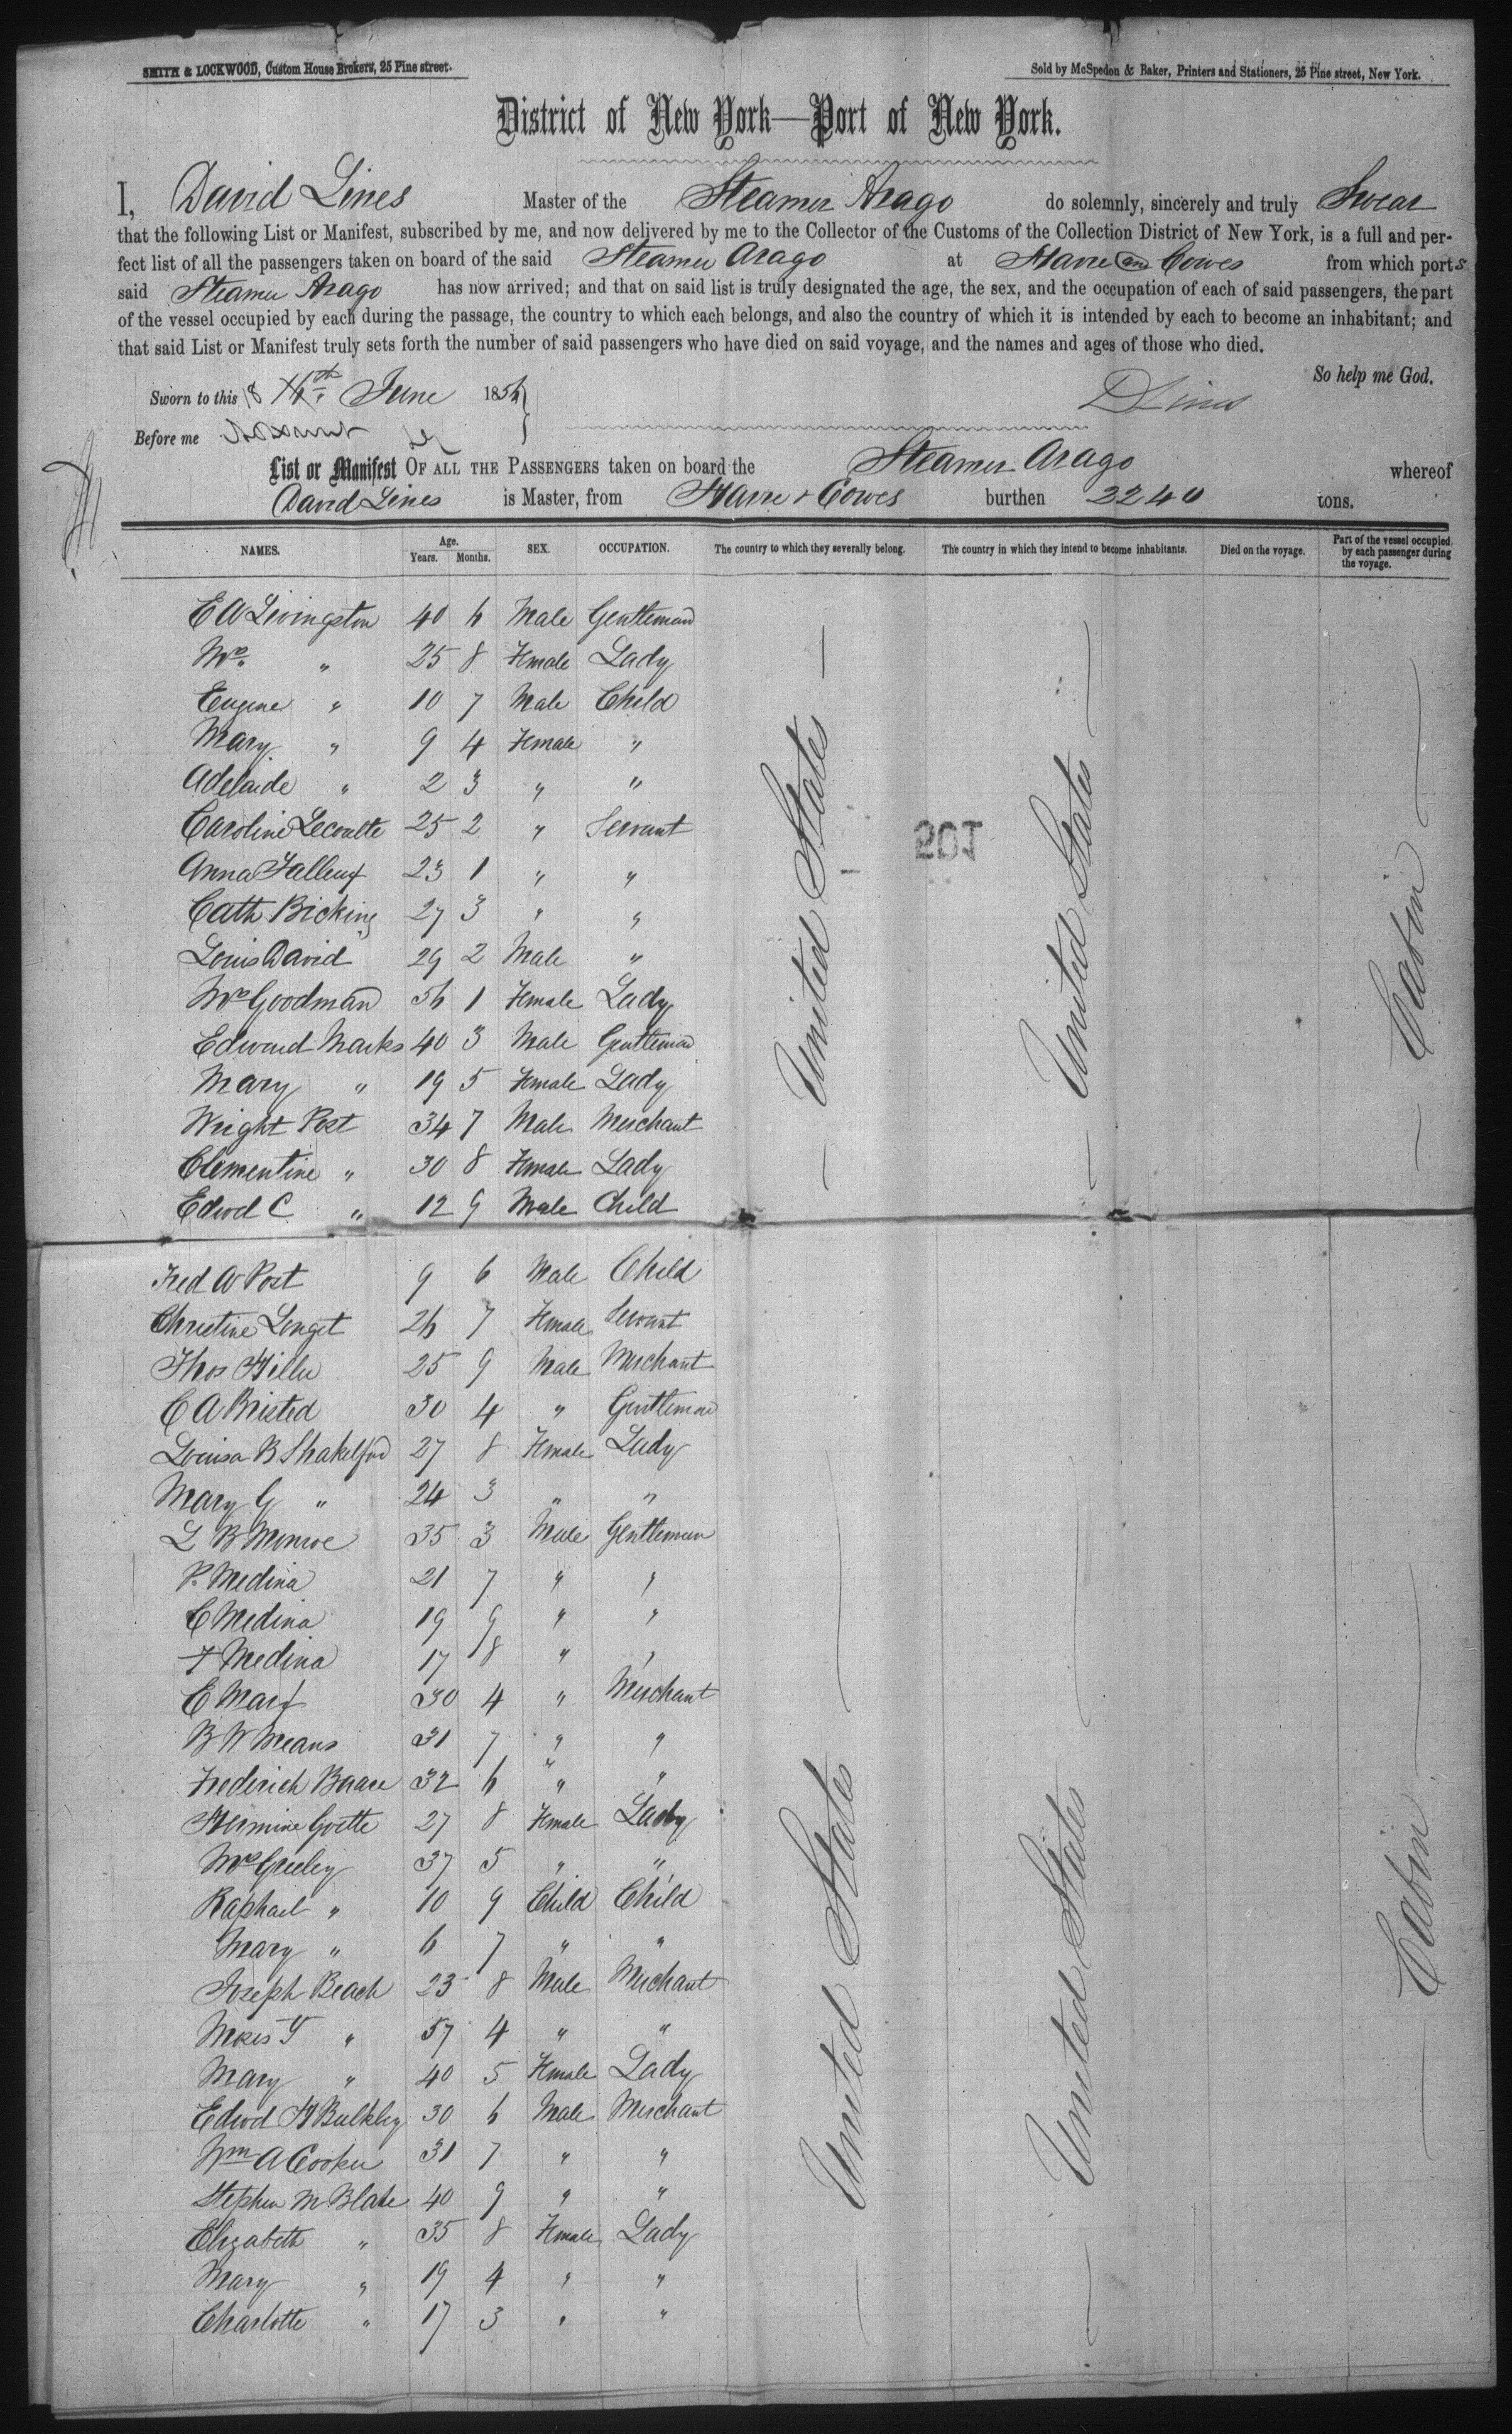 SMITH & LOCKWOOD, Custom House Brokers, 25 Pine street.
Sold by McSpedon & Baker, Printers and Stationers, 25 Pine street, New York.
District of New York—Port of New York.
I, David Lines Master of the Steamer Arago do solemnly, sincerely and truly Swear
that the following List or Manifest, subscribed by me, and now delivered by me to the Collector of the Customs of the Collection District of New York, is a full and per-
fect list of all the passengers taken on board of the said Steamer Arago at Havre and Cowes from which ports
said Steamer Arago has now arrived; and that on said list is truly designated the age, the sex, and the occupation of each of said passengers, the part
of the vessel occupied by each during the passage, the country to which each belongs, and also the country of which it is intended by each to become an inhabitant; and
that said List or Manifest truly sets forth the number of said passengers who have died on said voyage, and the names and ages of those who died.
So help me God.
Sworn to this 18 June 1856
D Lines
Before me
List or Manifest OF ALL THE PASSENGERS taken on board the Steamer Arago whereof
David Lines is Master, from Havre & Cowes burthen 2240 tons.
NAMES. Age. Years. Months. SEX. OCCUPATION. The country to which they severally belong. The country in which they intend to become inhabitants. Died on the voyage. Part of the vessel occupied by each passenger during the voyage.
E A Livingston 40 6 Male Gentleman
Mrs " 25 8 Female Lady
Eugene " 10 7 Male Child
Mary " 9 4 Female "
Adelaide " 2 3 " "
Caroline Lecoulte 25 2 " Servant
Anna 23 1 " "
Cath Bicking 27 3 " "
Louis David 29 2 Male "
Mrs Goodman 56 1 Female Lady
Edward Marks 40 3 Male Gentleman
Mary " 19 5 Female Lady
Wright Post 34 7 Male Merchant
Clementine " 30 8 Female Lady
Edwd C " 12 9 Male Child
United States
United States
Cabin
201
Fred W Post 9 6 Male Child
Christine Lenget 26 7 Female Servant
Thos Hiller 25 9 Male Merchant
C A Bristed 30 4 " Gentleman
Louisa B Shakelford 27 8 Female Lady
Mary G " 24 3 " "
L B Monroe 35 3 Male Gentleman
P. Medina 21 7 " "
C Medina 19 9 " "
F Medina 17 8 " "
E Marx 30 4 " Merchant
B W Means 31 7 " "
Frederich Baare 32 6 " "
Hermine Goette 27 8 Female Lady
Mrs Greeley 37 5 " "
Raphael " 10 9 Child Child
Mary " 6 7 " "
Joseph Beach 23 8 Male Merchant
Moses Y " 57 4 " "
Mary " 40 5 Female Lady
Edwd H Bulkley 30 6 Male Merchant
Wm A Cooker 31 7 " "
Stephen M Blake 40 9 " "
Elizabeth " 35 8 Female Lady
Mary " 19 4 " "
Charlotte " 17 3 " "
United States
United States
Cabin